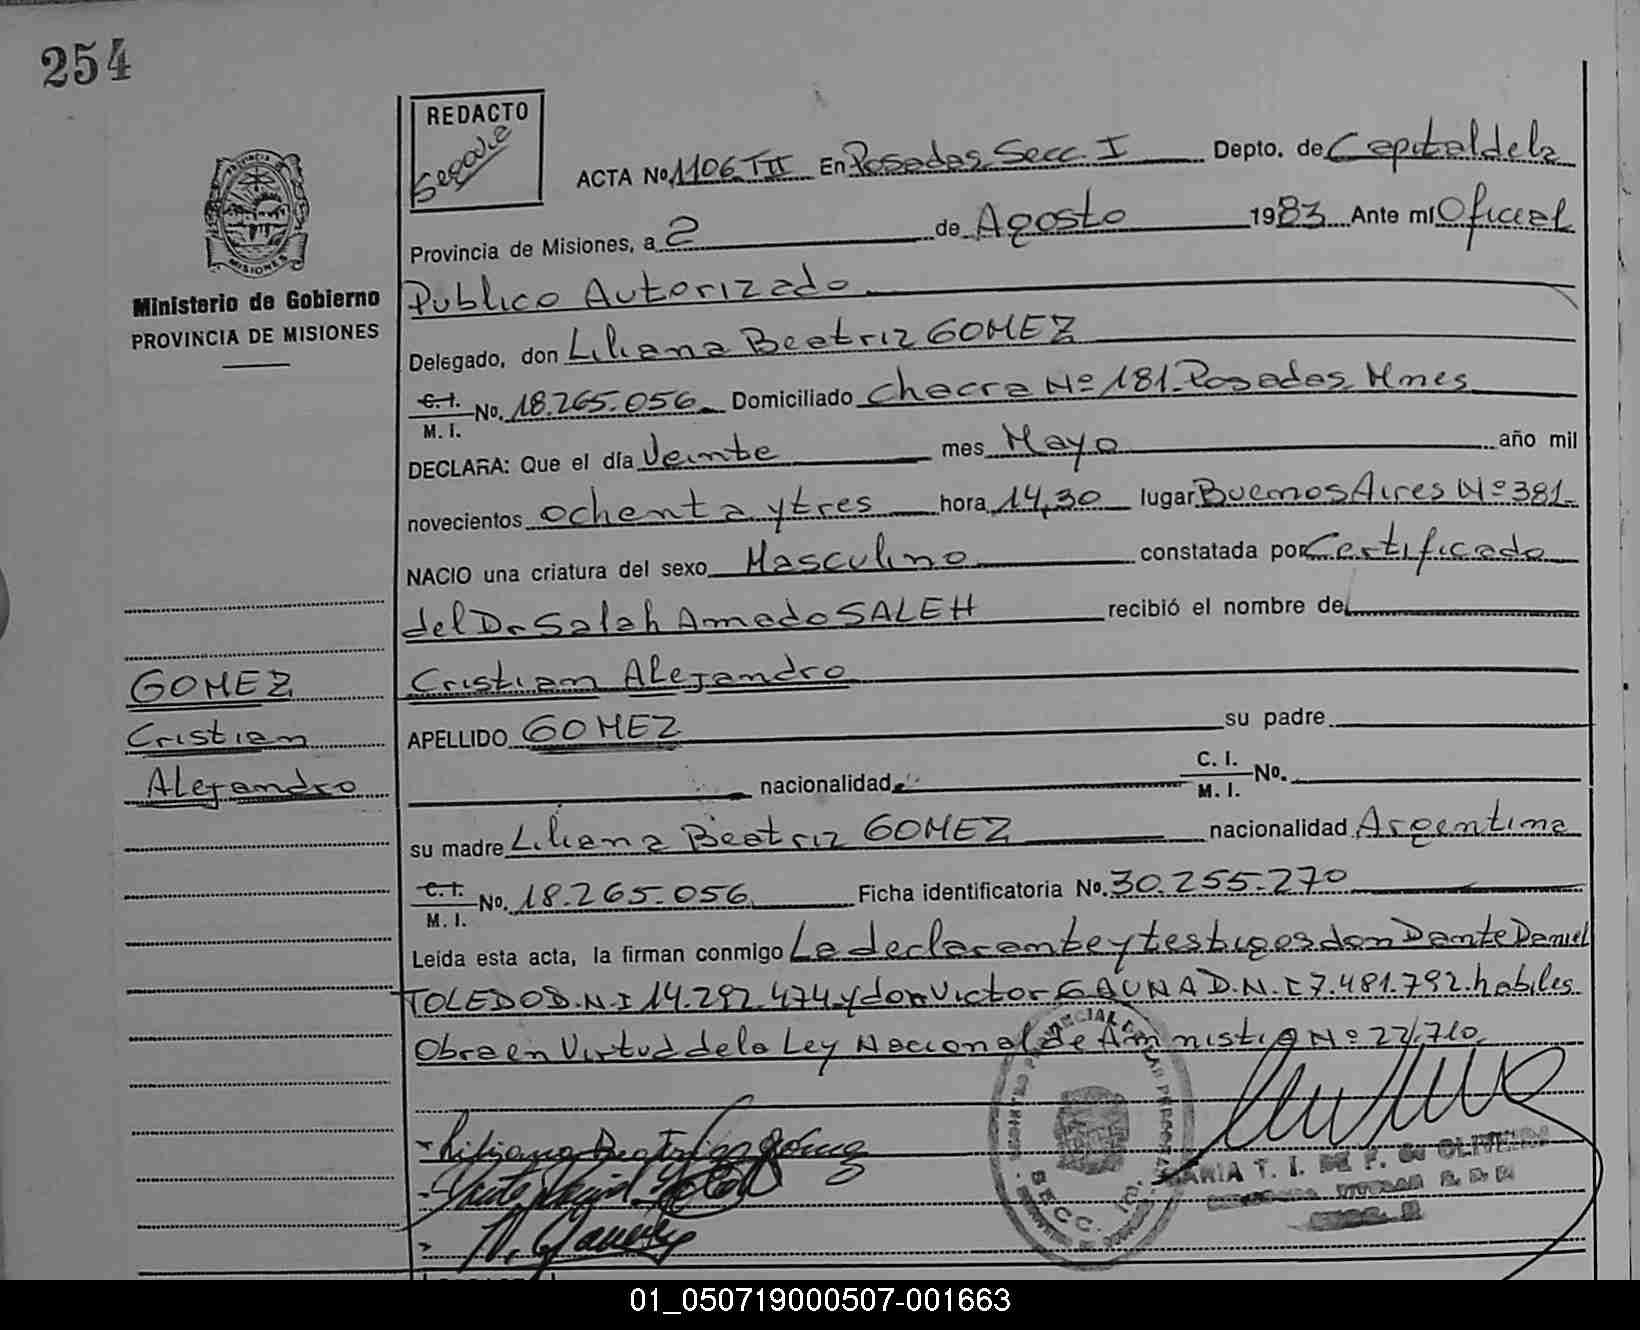 254
REDACTO
ACTA No. 1106 TII En Posadas Secc. I Depto. de Capital de la
Provincia de Misiones, a 2 de Agosto 1983 Ante mí Oficial
Publico Autorizado
Delegado, don Liliana Beatriz GOMEZ
C.I.
M. I. No. 18.265.056 Domiciliado Chacra Nº 181 Posadas Mnes
DECLARA: Que el día Veinte mes Mayo año mil
novecientos ochenta y tres hora 14,30 lugar Buenos Aires Nº 381
NACIO una criatura del sexo Masculino constatada por Certificado
del Dr Salah Amado SALEH recibió el nombre de
Cristian Alejandro
APELLIDO GOMEZ su padre
nacionalidad C. I.
M. I. No.
su madre Liliana Beatriz GOMEZ nacionalidad Argentina
C.I.
M. I. No. 18.265.056 Ficha identificatoria No. 30.255.270
Leída esta acta, la firman conmigo La declarante y testigos don Dante Daniel
TOLEDO D.N.I 14.292.474 y don Victor GAUNA D.N.I 7.481.792. habiles
Obra en Virtud de la Ley Nacional de Amnistia Nº 22.710
Ministerio de Gobierno
PROVINCIA DE MISIONES
GOMEZ
Cristian
Alejandro
MARIA T. I. DE F. OLIVEIRA
SECC.
01_050719000507-001663